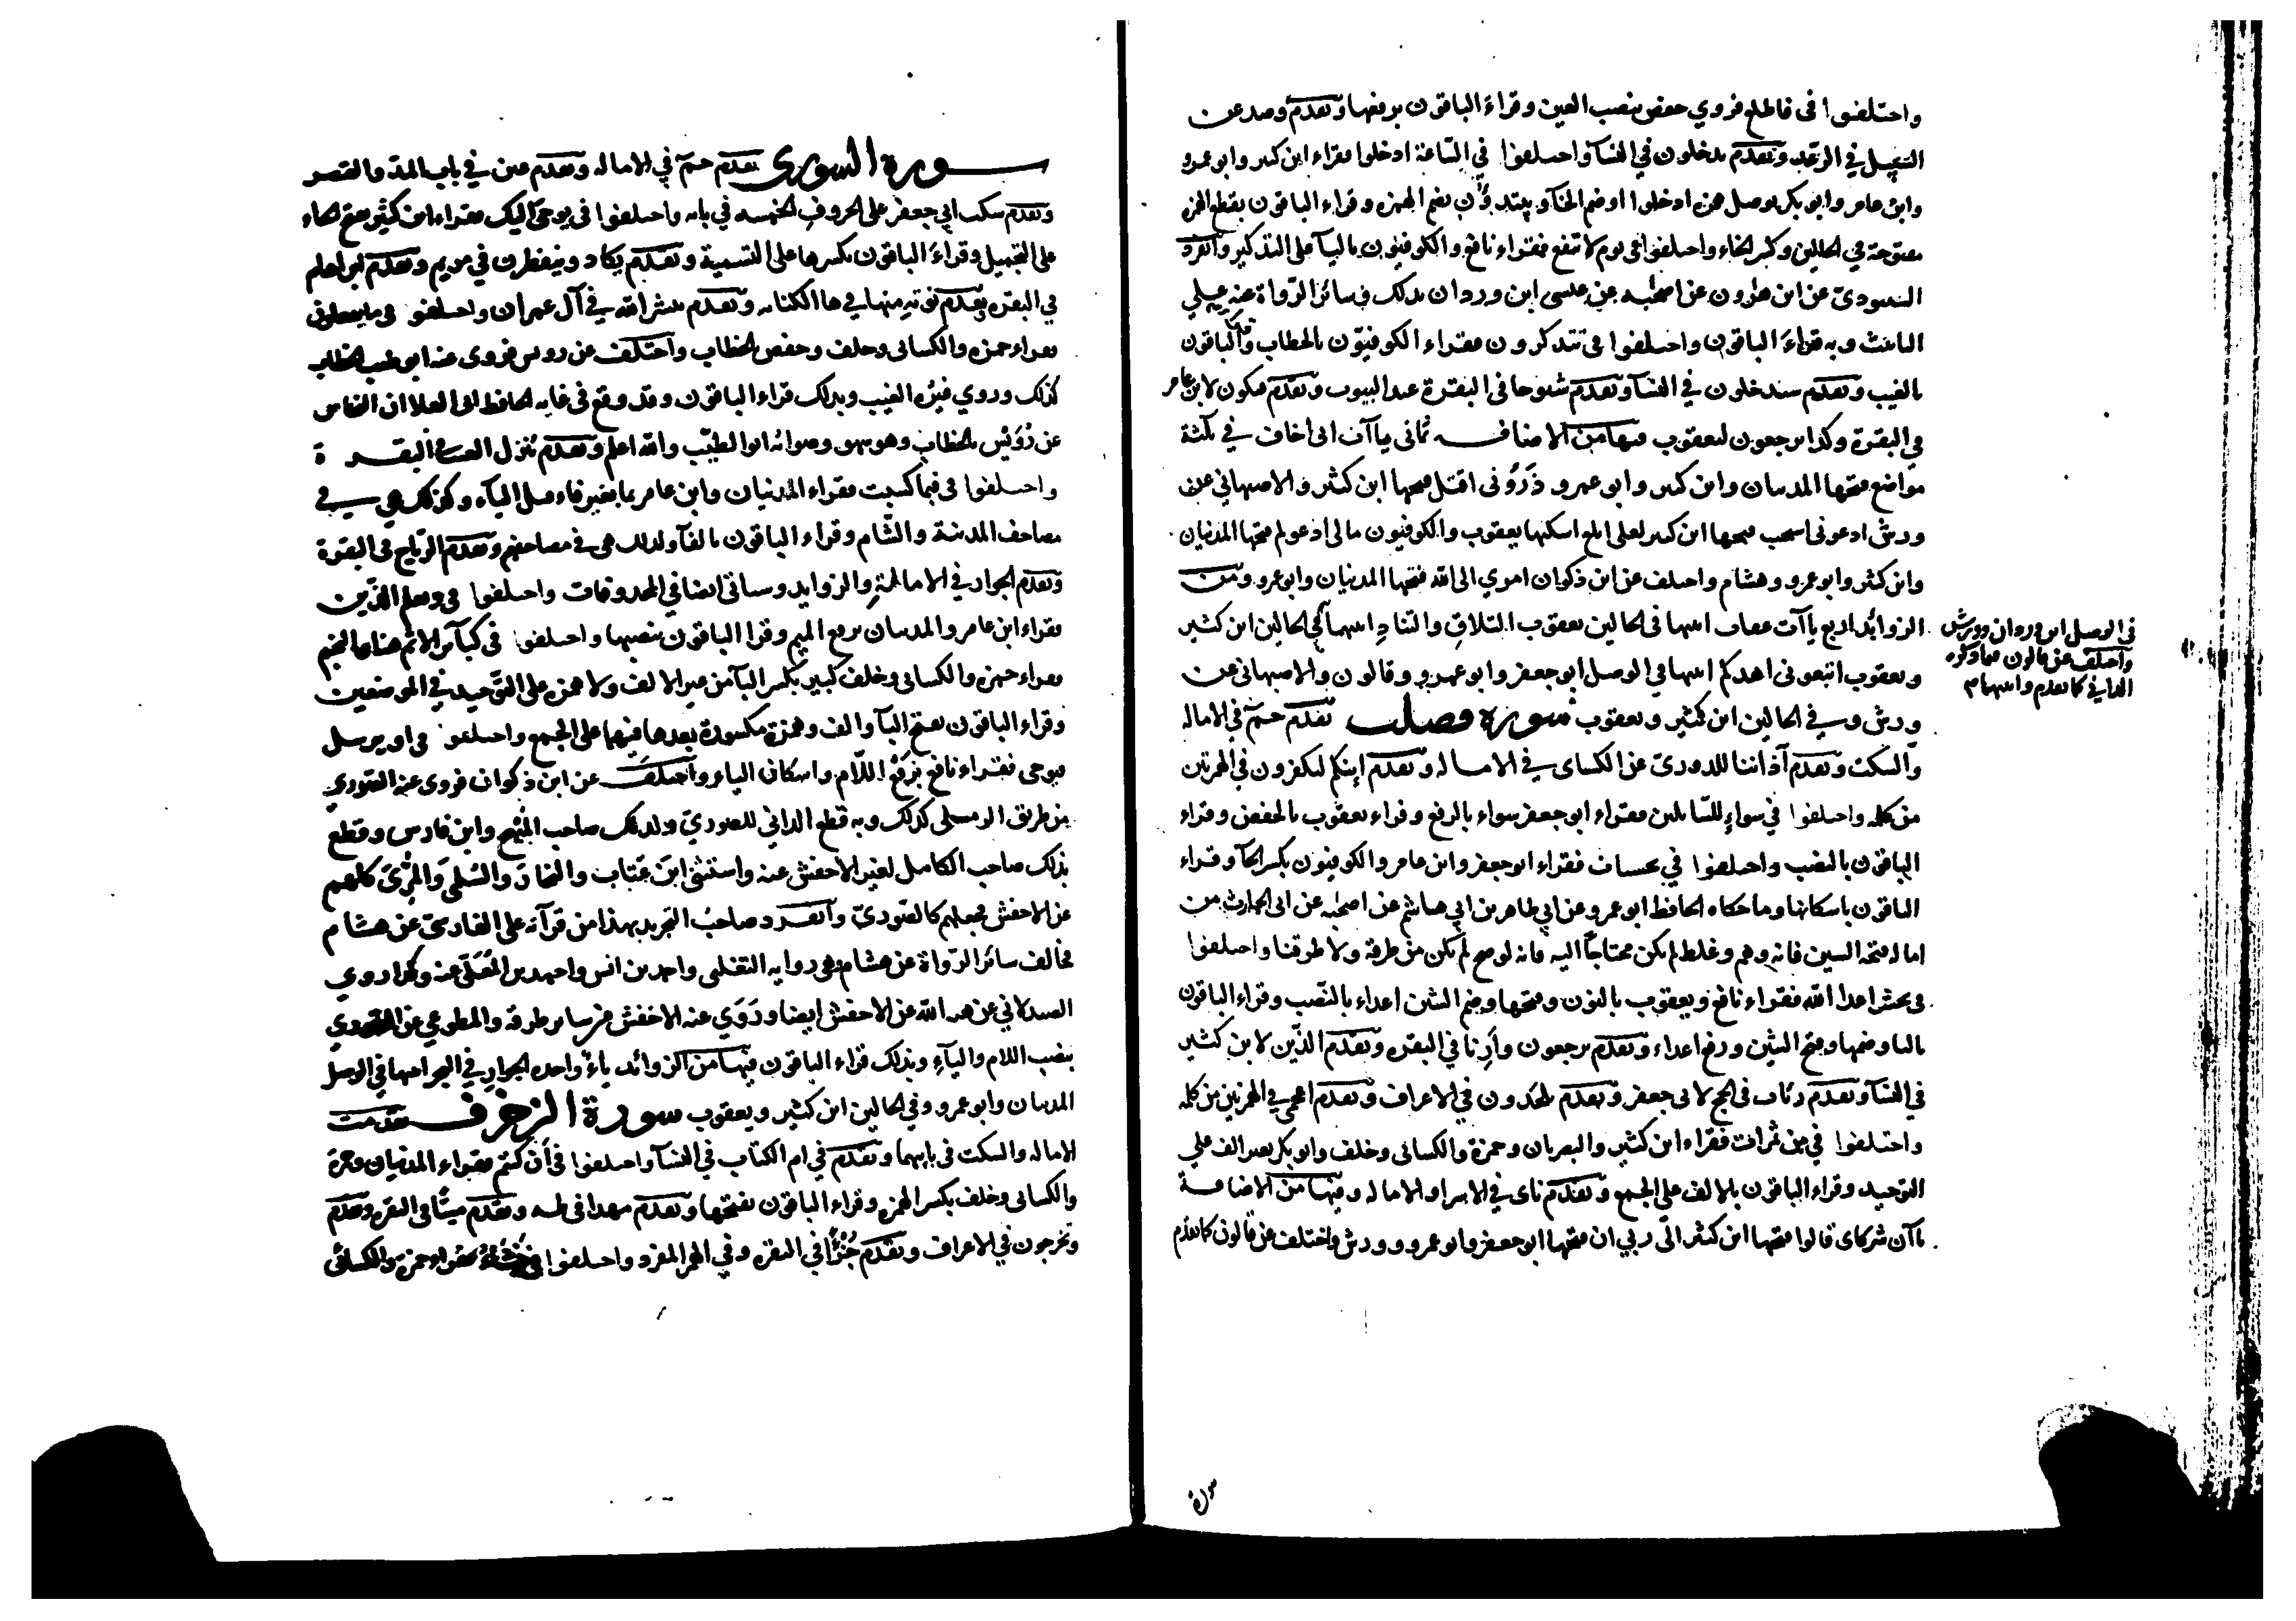 واختلفوا في فاطلع فروي حفص بنصب العين وقراء الباقون برفعها وتقدم وصد عن
السبيل في الرعد وتقدم يدخلون في النسآ واختلفوا في الساعة ادخلوا فقراء ابن كثير وابو عمرو
وابن عامر وابو بكر بوصل همزة ادخلوا وضم الخآ ويبتدؤن بضم الهمزه وقراء الباقون بقطع الهمزه
مفتوحة في الحالين وكسر الخاء واختلفوا في يوم لا تنفع فقراء نافع والكوفيون باليآ على التذكير وانفرد
الشنبوذي عن ابن هارون عن اصحابه عن عيسى ابن وردان بذلك وسائر الرواة عنه على
التانيث وبه قراء الباقون واختلفوا في تتذكرون فقراء الكوفيون بالخطاب وقراء الباقون
بالغيب وتقدم سيدخلون في النسآ وتقدم شيوخا في البقرة عند البيوت وتقدم فيكون لابن عامر
في البقرة وكذا يرجعون ليعقوب فيها من الاضافه ثماني ياآت اني اخاف في ثلثة
مواضع فتحها المدنيان وابن كثير وابو عمرو ذروني اقتل فتحها ابن كثير والاصبهاني عن
ورش ادعوني استجب فتحها ابن كثير لعلي ابلغ اسكنها يعقوب والكوفيون مالي ادعوكم فتحها المدنيان
وابن كثير وابو عمرو وهشام واختلف عن ابن ذكوان امري الى الله فتحها المدنيان وابو عمرو ومن
الزوائد اربع ياآت عقاب اثبتها في الحالين يعقوب التلاق والتناد اثبتهما في الحالين ابن كثير
في الوصل ابن وردان وورش
واختلف عن قالون فيما ذكره
الداني كما تقدم واثبتهما
ويعقوب اتبعوني اهدكم اثبتها في الوصل ابو جعفر وابو عمرو وقالون والاصبهاني عن
ورش وفي الحالين ابن كثير ويعقوب سورة فصلت تقدم حم في الاماله
والسكت وتقدم آذاننا للدوري عن الكساي في الاماله وتقدم اينكم لتكفرون في الهمزتين
من كلمه واختلفوا في سواء للسائلين فقراء ابو جعفر سواء بالرفع وقراء يعقوب بالخفض وقراء
الباقون بالنصب واختلفوا في نحسات فقراء ابو جعفر وابن عامر والكوفيون بكسر الحآ وقراء
الباقون باسكانها وما حكاه الحافظ ابو عمرو عن ابي طاهر بن ابي هاشم عن اصحابه عن ابي الحارث من
اماله فتحه السين فانه وهم وغلط لم يكن محتاجاً اليه فانه لو صح لم يكن من طرقه ولا طرقنا واختلفوا
في يحشر اعدا الله فقراء نافع ويعقوب بالنون وفتحها وضم الشين اعداء بالنصب وقراء الباقون
باليا وضمها وفتح الشين ورفع اعداء وتقدم يرجعون وأرنا في البقره وتقدم الذين لابن كثير
في النسآ وتقدم ربأت في الحج لابي جعفر وتقدم يلحدون في الاعراف وتقدم اعجمي في الهمزتين من كلمه
واختلفوا في من ثمرات فقراء ابن كثير والبصريان وحمزة والكسائي وخلف وابو بكر بغير الف على
التوحيد وقراء الباقون بالالف على الجمع وتقدم ناى في الاسرا والاماله وفيها من الاضافة
ياآن شركاي قالوا فتحها ابن كثير الى ربي ان فتحها ابو جعفر وابو عمرو وورش واختلف عن قالون كما تقدم
سورة
سورة الشورى تقدم حم في الاماله وتقدم عين في باب المد والقصر
وتقدم سكت ابي جعفر على الحروف الخمسه في بابه واختلفوا في يوحى اليك فقراء ابن كثير بفتح الحاء
على التجهيل وقراء الباقون بكسرها على التسمية وتقدم يكاد ويتفطرن في مريم وتقدم ابراهام
في البقره وتقدم نوته منها في ها الكنايه وتقدم يبشر الله في آل عمران واختلفوا في ما يفعلون
فقراء حمزه والكسائي وخلف وحفص بالخطاب واختلف عن رويس فروى عنه ابو طيب الخطاب
كذلك وروي غيره الغيب وبذلك قراء الباقون وقد وقع في غايه الحافظ ابي العلا ان النخاس
عن رويس بالخطاب وهو سهو وصوابه ابو الطيب والله اعلم وتقدم ينزل الغيث في البقرة
واختلفوا في فبما كسبت فقراء المدنيان وابن عامر بما بغير فاء قبل اليآء وكذلك هي في
مصاحف المدينة والشام وقراء الباقون بالفآ وكذلك هي في مصاحفهم وتقدم الرياح في البقرة
وتقدم الجوار في الامالة والزوايد وسياتي ايضا في المحذوفات واختلفوا في ويعلم الذين
فقراء ابن عامر والمدنيان برفع الميم وقرا الباقون بنصبها واختلفوا في كبآير الاثم هنا والنجم
فقراء حمزه والكسائي وخلف كبير بكسر البآ من غير الالف ولا همزه على التوحيد في الموضعين
وقراء الباقون بفتح البآ والف وهمزة مكسورة بعدها فيهما على الجمع واختلفوا في او يرسل
فيوحي فقراء نافع برفع اللام واسكان الياء واختلف عن ابن ذكوان فروى عنه الصوري
من طريق الرملي كذلك وبه قطع الداني للصوري وكذلك صاحب المبهج وابن فارس وقطع
بذلك صاحب الكامل لغير الاخفش عنه واستثنى ابن عتاب والنجاد والسلمي والمري كلهم
عن الاخفش فجعلهم كالصوري وانفرد صاحب التجريد بهذا من قرآته على الفارسي عن هشام
فخالف سائر الرواة عن هشام وهي روايه التغلبي واحمد بن انس واحمد بن المعلى عنه وكذا روى
الصيدلاني عن هبة الله عن الاخفش ايضا وروي عنه الاخفش من سائر طرقه والمطوعي عن الصوري
بنصب اللام واليآء وبذلك قراء الباقون فيها من الزوائد ياء واحده الجوار في البحر اثبتها في الوصل
المدنيان وابو عمرو وفي الحالين ابن كثير ويعقوب سورة الزخرف تقدمت
الاماله والسكت في بابهما وتقدم في ام الكتاب في النسآ واختلفوا في أن كنتم فقراء المدنيان وحمزة
والكسائي وخلف بكسر الهمزه وقراء الباقون بفتحها وتقدم مهدا في طه وتقدم ميتا في البقره وتقدم
وتخرجون في الاعراف وتقدم جزؤا في البقره وفي الهمز المفرد واختلفوا في ينشؤ فقراء حمزة والكسائي